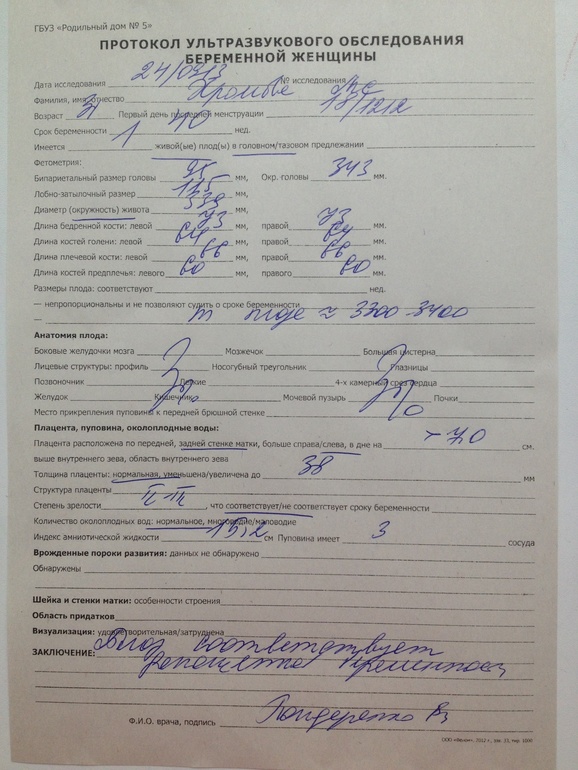 ГБУЗ «Родильный дом № 5»
ПРОТОКОЛ УЛЬТРАЗВУКОВОГО ОБСЛЕДОВАНИЯ
БЕРЕМЕННОЙ ЖЕНЩИНЫ
Дата исследования № исследования
Фамилия, имя, отчество
Возраст 31 Первый день последней менструации
Срок беременности 40 нед.
Имеется 1 живой(ые) плод(ы) в головном/тазовом предлежании
Фетометрия:
Бипариетальный размер головы 95 мм, Окр. головы 343 мм.
Лобно-затылочный размер 115 мм,
Диаметр (окружность) живота 339 мм,
Длина бедренной кости: левой 73 мм, правой 73 мм.
Длина костей голени: левой 64 мм, правой 64 мм.
Длина плечевой кости: левой 66 мм, правой 66 мм.
Длина костей предплечья: левого 60 мм, правого 60 мм.
Размеры плода: соответствуют нед.
— непропорциональны и не позволяют судить о сроке беременности
— m плода ≈ 3300-3400
Анатомия плода:
Боковые желудочки мозга Мозжечок Большая цистерна
Лицевые структуры: профиль Носогубный треугольник Глазницы
Позвоночник Легкие 4-х камерный срез сердца
Желудок Кишечник Мочевой пузырь Почки
Место прикрепления пуповины к передней брюшной стенке
Плацента, пуповина, околоплодные воды:
Плацента расположена по передней, задней стенке матки, больше справа/слева, в дне на > 70 см.
выше внутреннего зева, область внутреннего зева
Толщина плаценты: нормальная, уменьшена/увеличена до 38 мм
Структура плаценты
Степень зрелости II-III, что соответствует/не соответствует сроку беременности
Количество околоплодных вод: нормальное, многоводие/маловодие
Индекс амниотической жидкости 15,2 см Пуповина имеет 3 сосуда
Врожденные пороки развития: данных не обнаружено
Обнаружены
Шейка и стенки матки: особенности строения
Область придатков
Визуализация: удовлетворительная/затруднена
ЗАКЛЮЧЕНИЕ: Плод соответствует
доношенной беременности
Ф.И.О. врача, подпись